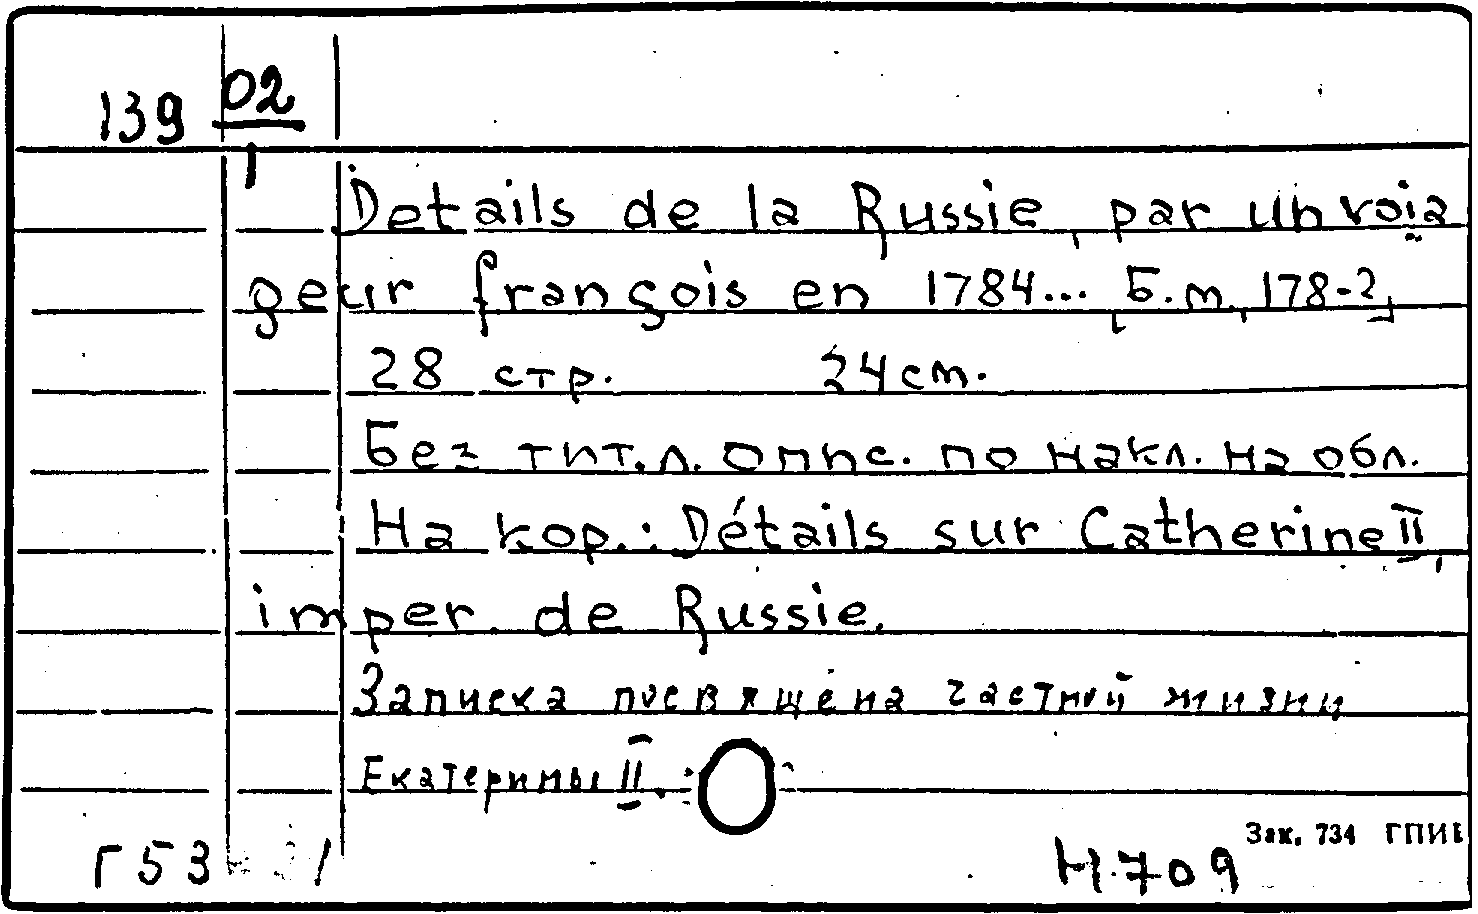 139 02
1
Details de la Russie, par un voia
geur françois en 1784... [Б.m., 178-?]
28 стр. 24 cm.
Без тит. л. Опис. по накл. на обл.
На кор.: Détails sur Catherine II,
imper. de Russie.
Записка посвящена частной жизни
Екатерины II.
Зак. 734 ГПИБ
Г53 1 Н.709